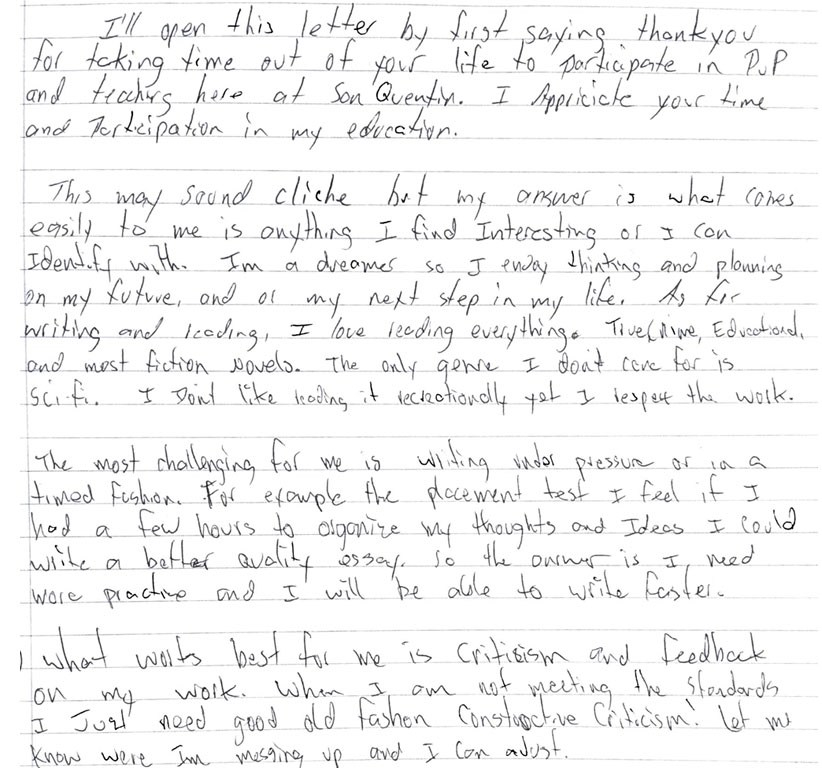 I'll open this letter by first saying thankyou
for taking time out of your life to participate in PUP
and teaching here at San Quentin. I Appriciate your time
and Participation in my education.
This may sound cliche but my answer is what comes
easily to me is anything I find Interesting or I can
Identify with. Im a dreamer so I enjoy thinking and planning
on my future, and or my next step in my life. As for
writing and reading, I love reading everything. True Crime, Educational,
and most fiction novels. The only genre I don't care for is
Sci-fi. I Don't like reading it recreationally yet I respect the work.
The most challenging for me is writing under pressure or in a
timed fashion. For example the placement test I feel if I
had a few hours to organize my thoughts and Ideas I could
write a better quality essay. So the answer is I need
more practice and I will be able to write faster.
What works best for me is Criticism and feedback
on my work. When I am not meeting the standards
I Just need good old fashon Constructive Criticism! Let me
know were Im messing up and I can adjust.